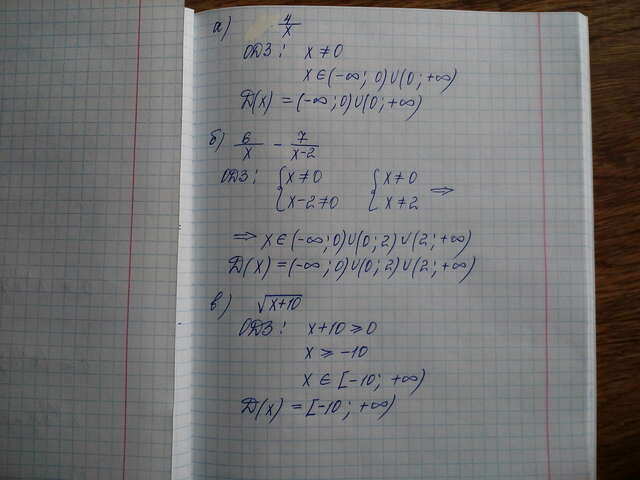 а) 4/x
ОДЗ: x ≠ 0
x ∈ (-∞; 0) ∪ (0; +∞)
D(x) = (-∞; 0) ∪ (0; +∞)
б) 6/x - 7/(x-2)
ОДЗ: { x ≠ 0 { x ≠ 0 ⇒
{ x-2 ≠ 0 { x ≠ 2
⇒ x ∈ (-∞; 0) ∪ (0; 2) ∪ (2; +∞)
D(x) = (-∞; 0) ∪ (0; 2) ∪ (2; +∞)
в) √(x+10)
ОДЗ: x+10 ≥ 0
x ≥ -10
x ∈ [-10; +∞)
D(x) = [-10; +∞)